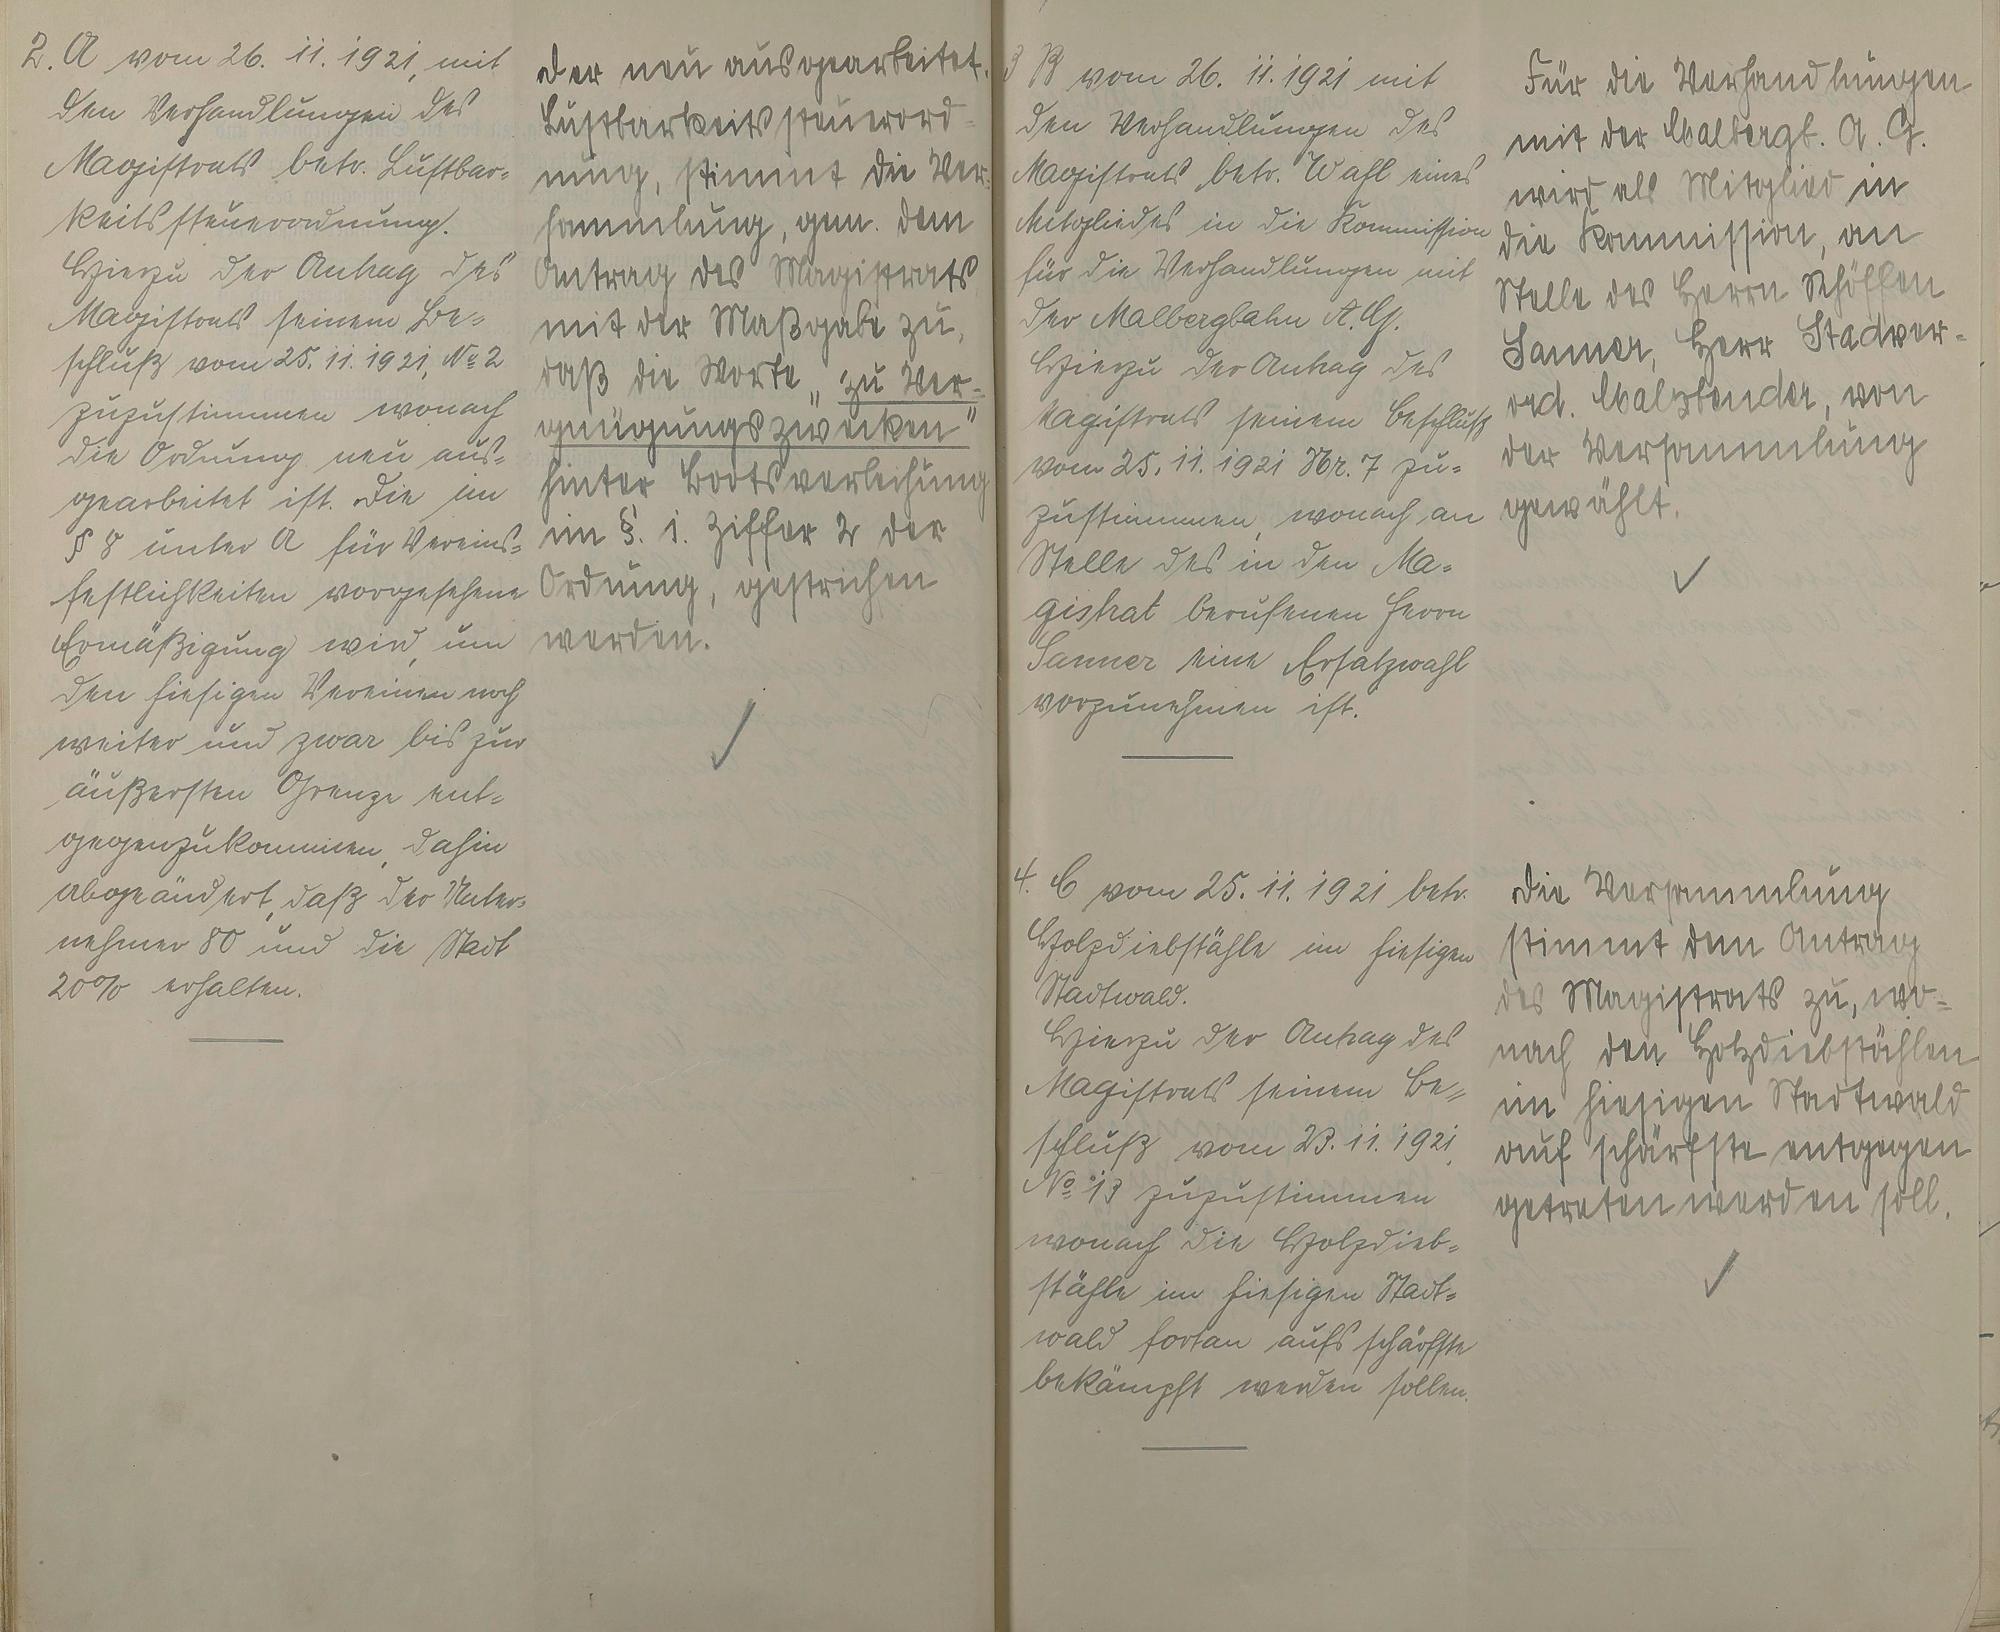 2. A vom 26. 11. 1921, mit
den Verhandlungen des
Magistrats betr. Lustbar-
keitssteuerordnung.
Hierzu der Antrag des
Magistrats seinem Be-
schluß vom 25. 11. 1921, No 2
zuzustimmen wonach
die Ordnung neu aus-
gearbeitet ist. Die im
§ 8 unter A für Vereins-
festlichkeiten vorgesehene
Ermäßigung wird, um
den hiesigen Vereinen noch
weiter und zwar bis zur
äußersten Grenze ent-
gegenzukommen, dahin
abgeändert, daß der Unter-
nehmer 80 und die Stadt
20% erhalten.
Der neu ausgearbeitet.
Lustbarkeitssteuerord-
nung, stimmt die Ver-
sammlung, gem. dem
Antrag des Magistrats
mit der Maßgabe zu,
daß die Worte „zu Ver-
gnügungszwecken"
hinter Bootsverleihung
im §. 1. Ziffer 2 der
Ordnung, gestrichen
werden.
3 B vom 26. 11. 1921 mit
den Verhandlungen des
Magistrats betr. Wahl eines
Mitgliedes in die Kommission
für die Verhandlungen mit
der Malbergbahn A.G.
Hierzu der Antrag des
Magistrats seinem Beschluß
vom 25. 11. 1921 Nr. 7 zu-
zustimmen, wonach an
Stelle des in den Ma-
gistrat berufenen Herrn
Sanner eine Ersatzwahl
vorzunehmen ist.
Für die Verhandlungen
mit der Malbergb. A. G.
wird als Mitglied in
die Kommission, an
Stelle des Herrn Schöffen
Sanner, Herr Stadver-
ord. Malzbender, von
der Versammlung
gewählt.
4. C vom 25. 11. 1921 betr.
Holzdiebstähle im hiesigen
Stadtwald.
Hierzu der Antrag des
Magistrats seinem Be-
schluß vom 23. 11. 1921,
No 13 zuzustimmen
wonach die Holzdieb-
stähle im hiesigen Stadt-
wald fortan aufs schärfste
bekämpft werden sollen.
Die Versammlung
stimmt dem Antrag
des Magistrats zu, wo-
nach den Holzdiebstählen
im hiesigen Stadtwald
auf schärfste entgegen
getreten werden soll.